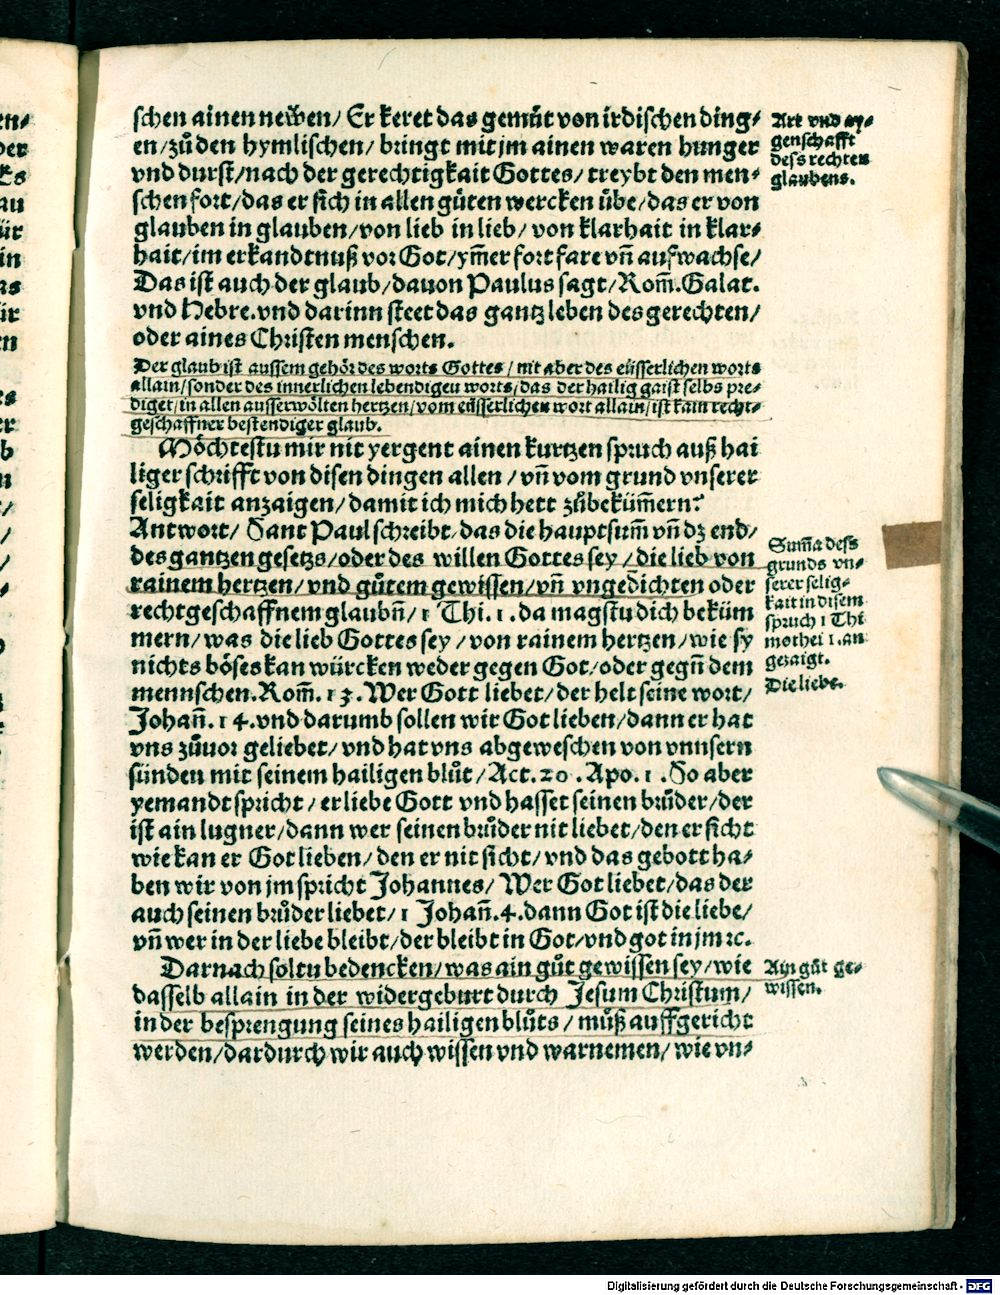 schen ainen newen/ Er keret das gemuͤt von irdischen ding⸗
en/ zuͦ den hymlischen/ bringt mit jm ainen waren hunger
vnd durst/ nach der gerechtigkait Gottes/ treybt den men⸗
schen fort/ das er sich in allen guͤten wercken uͤbe/ das er von
glauben in glauben/ von lieb in lieb/ von klarhait in klar⸗
hait/ im erkandtnuß vor Got/ ym̃er fort fare vñ aufwachse/
Das ist auch der glaub/ dauon Paulus sagt/ Rom̃. Galat.
vnd Hebre. vnd darinn steet das gantz leben des gerechten/
oder aines Christen menschen.
Art vnd ay⸗
genschafft
dess rechten
glaubens.
Der glaub ist aussem gehoͤr des worts Gottes/ nit aber des eüsserlichen worts
allain/ sonder des innerlichen lebendigen worts/ das der hailig gaist selbs pre⸗
diget/ in allen ausserwoͤlten hertzen/ vom eüsserlichen wort allain/ ist kain recht⸗
geschaffner bestendiger glaub.
Moͤchtestu mir nit yergent ainen kurtzen spruch auß hai
liger schrifft von disen dingen allen/ vñ vom grund vnserer
seligkait anzaigen/ damit ich mich hett zuͦbeküm̃ern?
Antwort/ Sant Paul schreibt/ das die hauptsum̃ vñ dz end/
des gantzen gesetzs/ oder des willen Gottes sey/ die lieb von
rainem hertzen/ vnd guͤtem gewissen/ vñ vngedichten oder
rechtgeschaffnem glaubñ/ 1 Thi. 1. da magstu dich beküm
mern/ was die lieb Gottes sey/ von rainem hertzen/ wie sy
nichts boͤses kan würcken weder gegen Got/ oder gegñ dem
mennschen. Rom̃. 13. Wer Gott liebet/ der helt seine wort/
Johañ. 14. vnd darumb sollen wir Got lieben/ dann er hat
vns zuͦuor geliebet/ vnd hat vns abgeweschen von vnnsern
sünden mit seinem hailigen bluͦt/ Act. 20. Apo. 1. So aber
yemandt spricht/ er liebe Gott vnd hasset seinen bruͦder/ der
ist ain lugner/ dann wer seinen bruͦder nit liebet/ den er sicht
wie kan er Got lieben/ den er nit sicht/ vnd das gebott ha⸗
ben wir von jm spricht Johannes/ Wer Got liebet/ das der
auch seinen bruͦder liebet/ 1 Johañ. 4. dann Got ist die liebe/
vñ wer in der liebe bleibt/ der bleibt in Got/ vnd got in jm ꝛc.
Sum̃a dess
grunds vn⸗
serer selig⸗
kait in disem
spruch 1 Thi
mothei 1. an
gezaigt.
Die liebe.
Darnach soltu bedencken/ was ain guͦt gewissen sey/ wie
dasselb allain in der widergeburt durch Jesum Christum/
in der besprengung seines hailigen bluͦts/ muͦß auffgericht
werden/ dardurch wir auch wissen vnd warnemen/ wie vn⸗
Ain guͦt ge⸗
wissen.
Digitalisierung gefördert durch die Deutsche Forschungsgemeinschaft - DFG